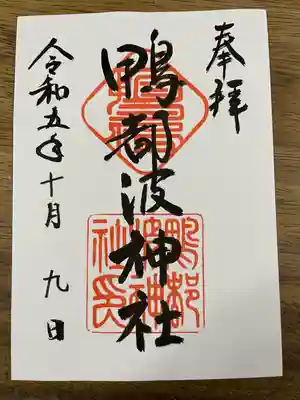 奉拝
鴨都波神社
令和五年十月九日
鴨都
波神
社印